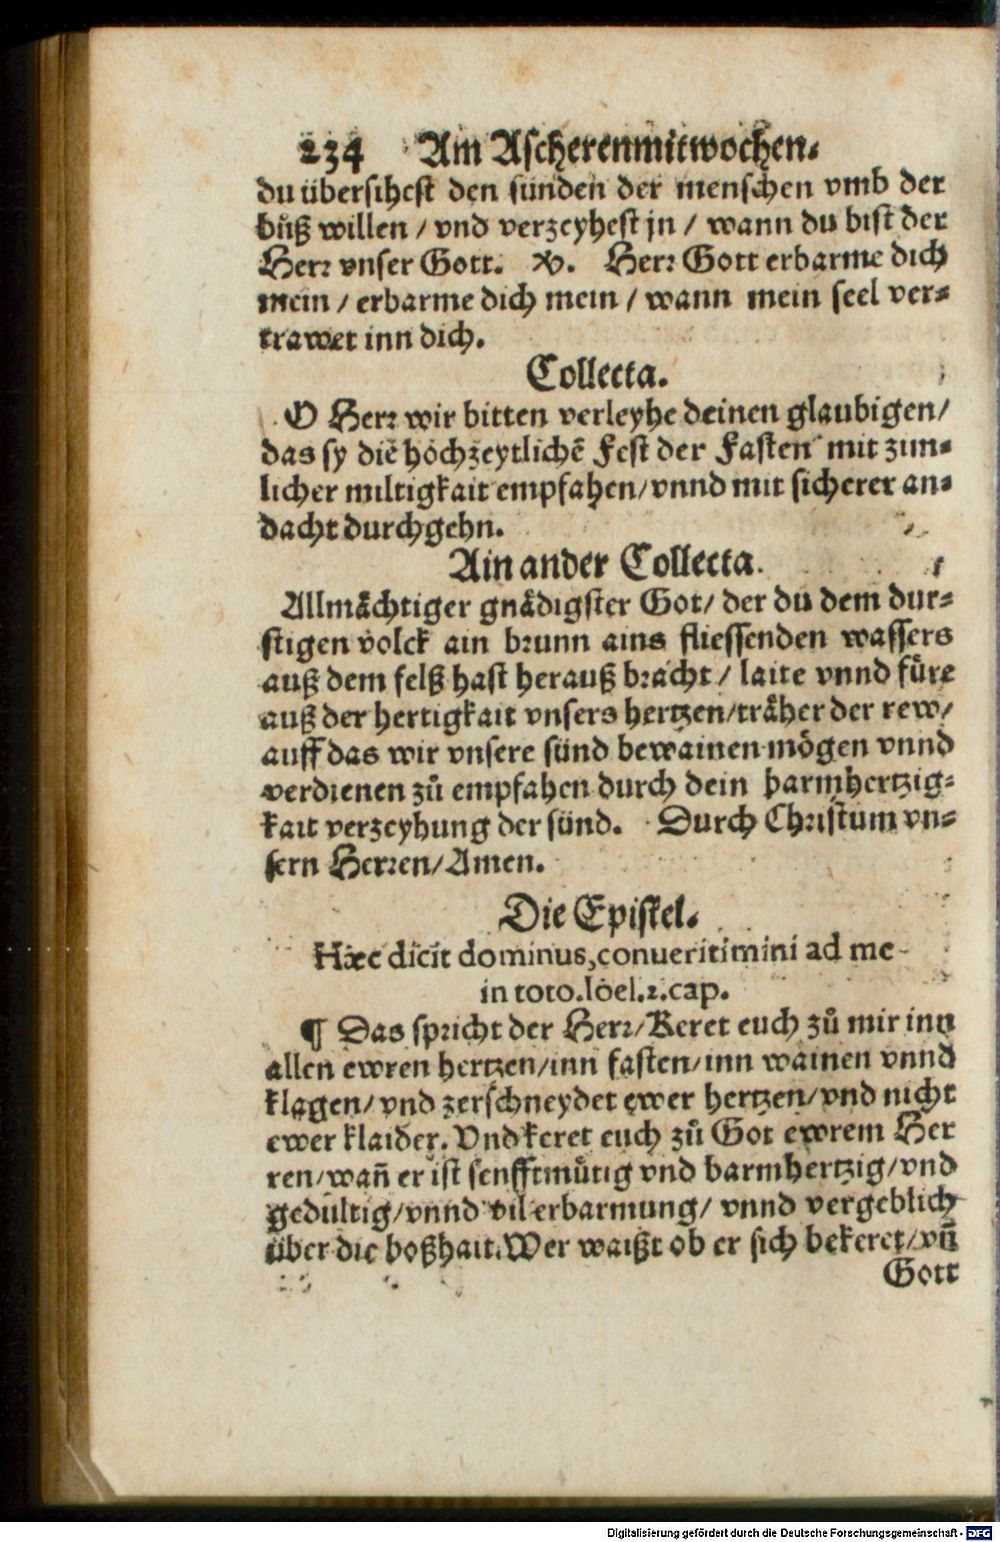 234 Am Ascherenmitwochen.
du übersihest den sünden der menschen vmb der
bůß willen / vnd verzeyhest jn / wann du bist der
Herr vnser Gott. ℣. Herr Gott erbarme dich
mein / erbarme dich mein / wann mein seel ver-
trawet inn dich.
Collecta.
O Herr wir bitten verleyhe deinen glaubigen/
das sy die hochzeytlichē Fest der Fasten mit zim-
licher miltigkait empfahen/vnnd mit sicherer an-
dacht durchgehn.
Ain ander Collecta.
Allmåchtiger gnådigster Got/ der du dem dur-
stigen volck ain brunn ains fliessenden wassers
auß dem felß hast herauß bracht / laite vnnd fůre
auß der hertigkait vnsers hertzen/tråher der rew/
auff das wir vnsere sünd bewainen mögen vnnd
verdienen zů empfahen durch dein barmhertzig-
kait verzeyhung der sünd. Durch Christum vn-
sern Herren/Amen.
Die Epistel.
Hæc dicit dominus,conuertimini ad me
in toto.Ioel.2.cap.
¶ Das spricht der Herr/Keret euch zů mir inn
allen ewren hertzen/inn fasten/inn wainen vnnd
klagen/vnd zerschneydet ewer hertzen/vnd nicht
ewer klaider. Vnd keret euch zů Got ewrem Her
ren/wañ er ist senfftmůtig vnd barmhertzig/vnd
gedültig/vnnd vil erbarmung/ vnnd vergeblich
über die boßhait. Wer waißt ob er sich bekeret/vñ
Gott
Digitalisierung gefördert durch die Deutsche Forschungsgemeinschaft - DFG